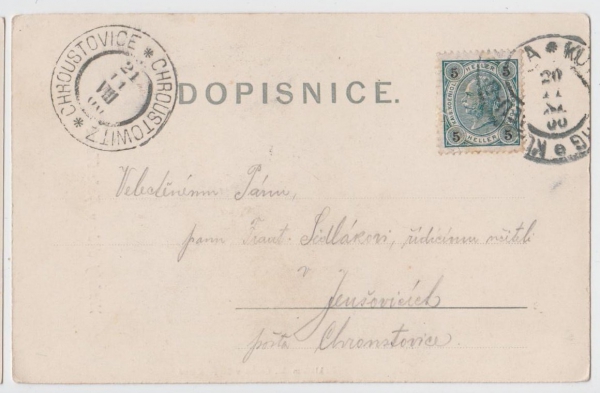 * CHROUSTOVICE * CHROUSTOWITZ
21
11
VIII
00
DOPISNICE.
5 HELLER 5
5 HELLER 5
Velectěnému Pánu,
panu Frant. Sedlákovi, řídícímu učiteli
v
Jenšovicích
pošta Chroustovice